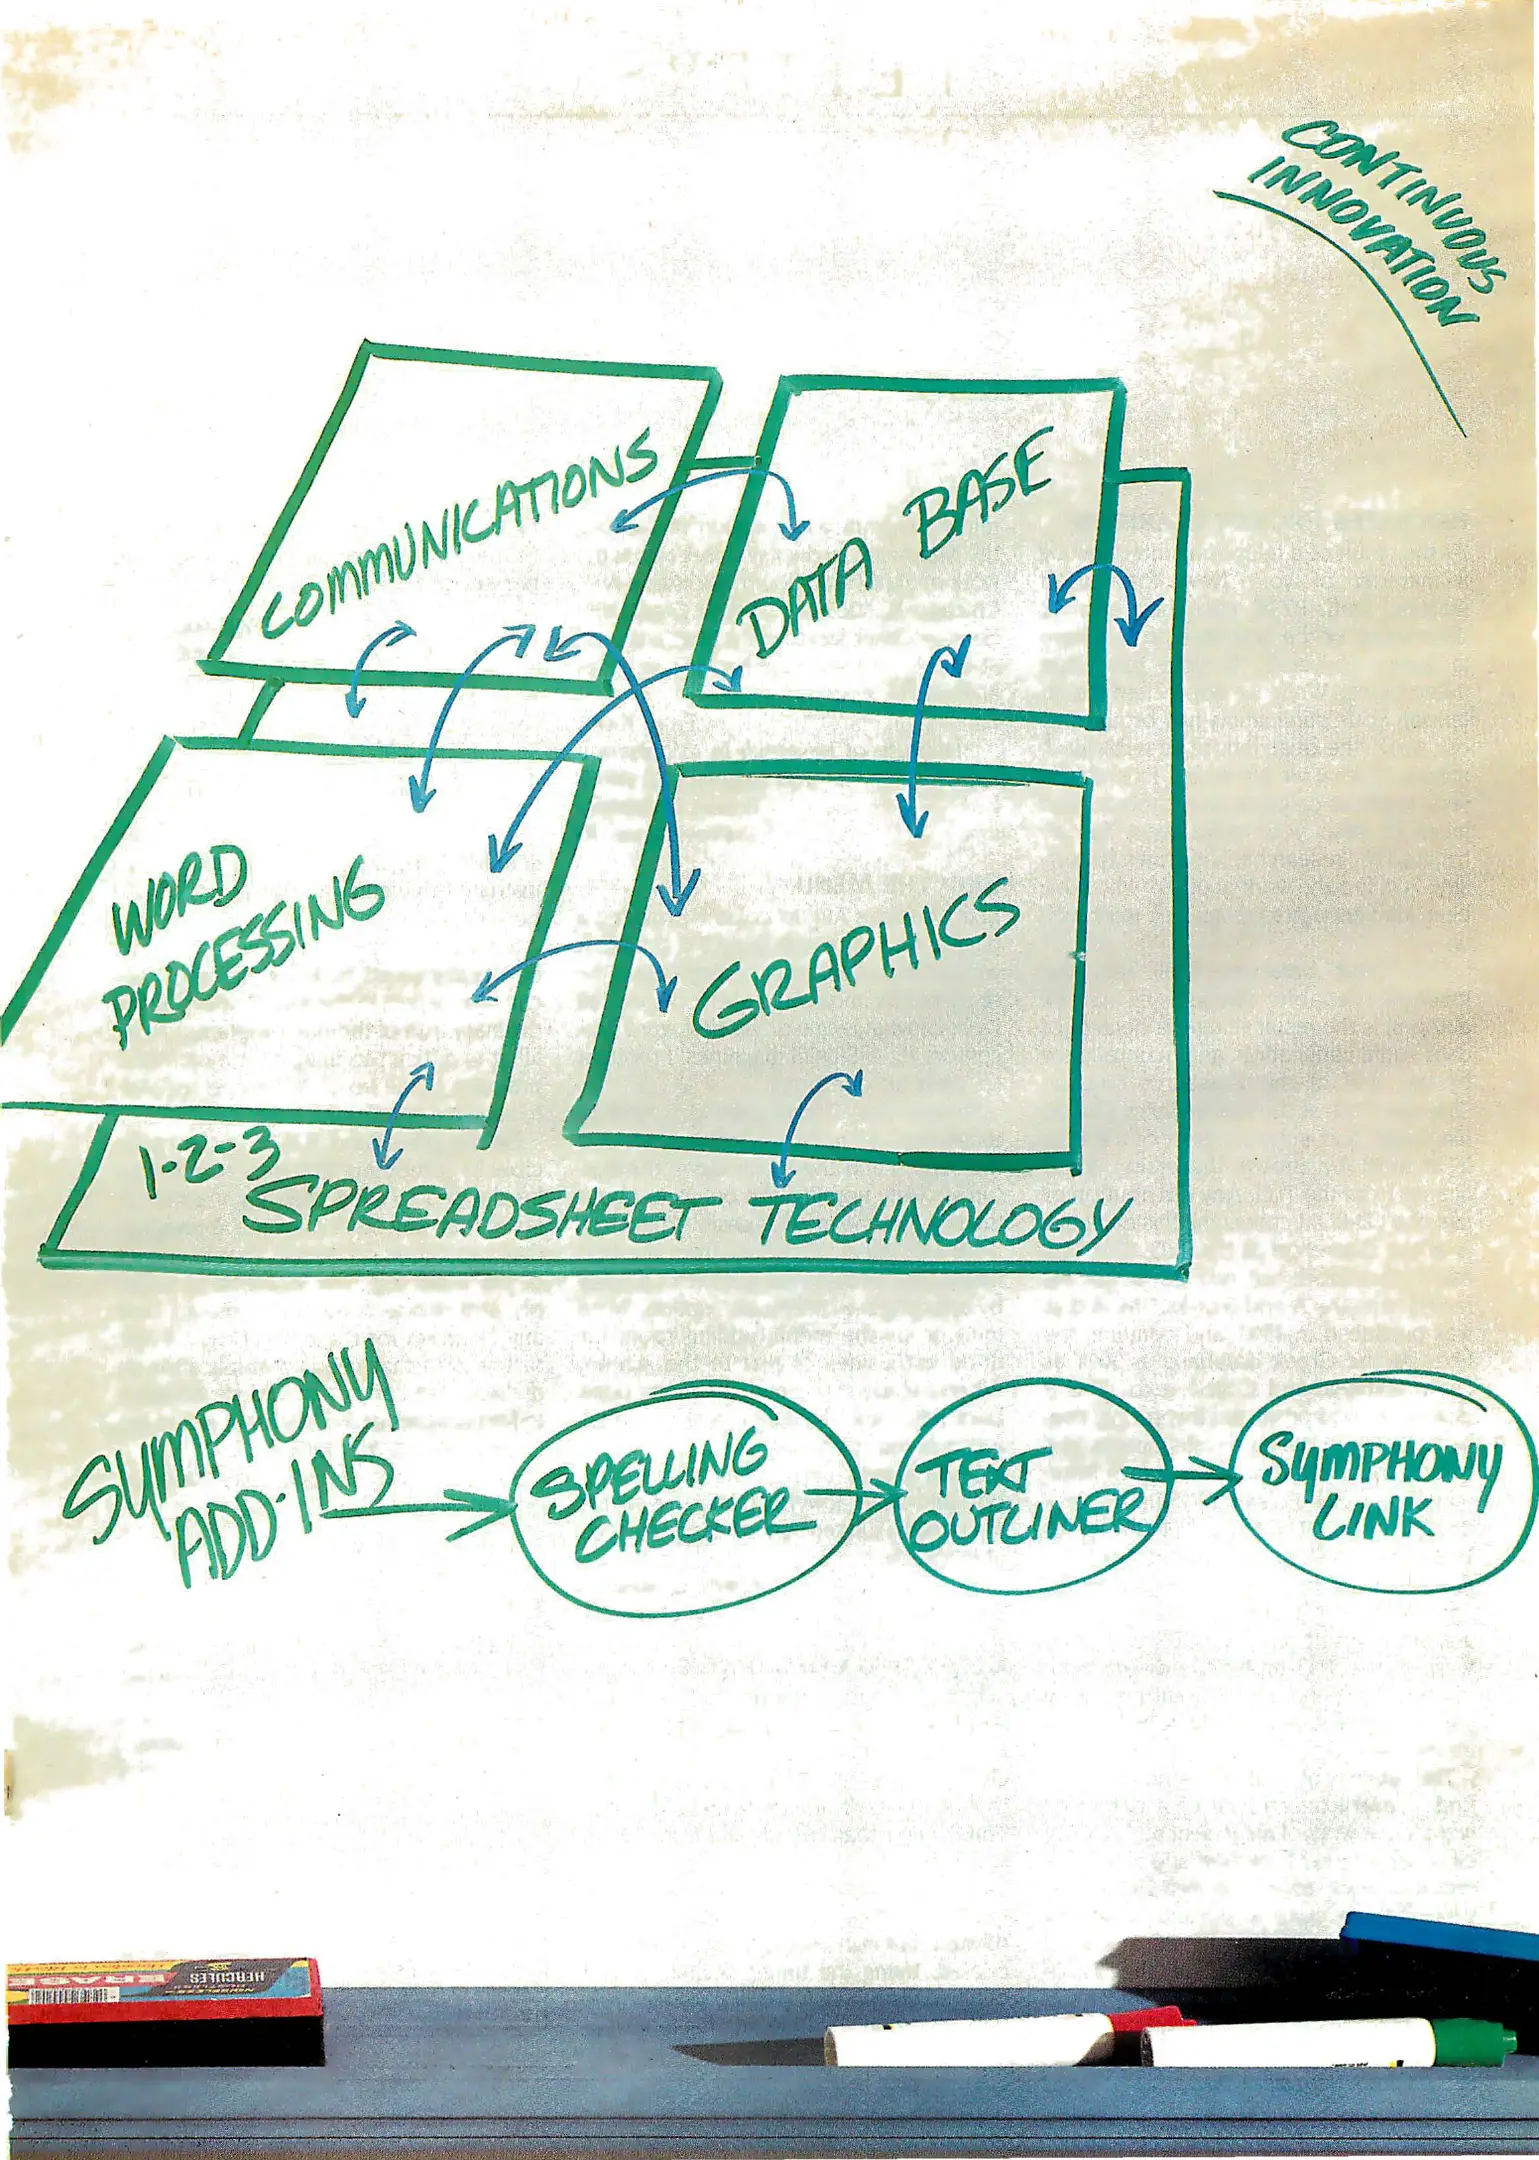 CONTINUOUS
INNOVATION
COMMUNICATIONS
DATA BASE
WORD
PROCESSING
GRAPHICS
1-2-3
SPREADSHEET TECHNOLOGY
SYMPHONY
ADD-INS
SPELLING
CHECKER
TEXT
OUTLINER
SYMPHONY
LINK
HERCULES
ERASE